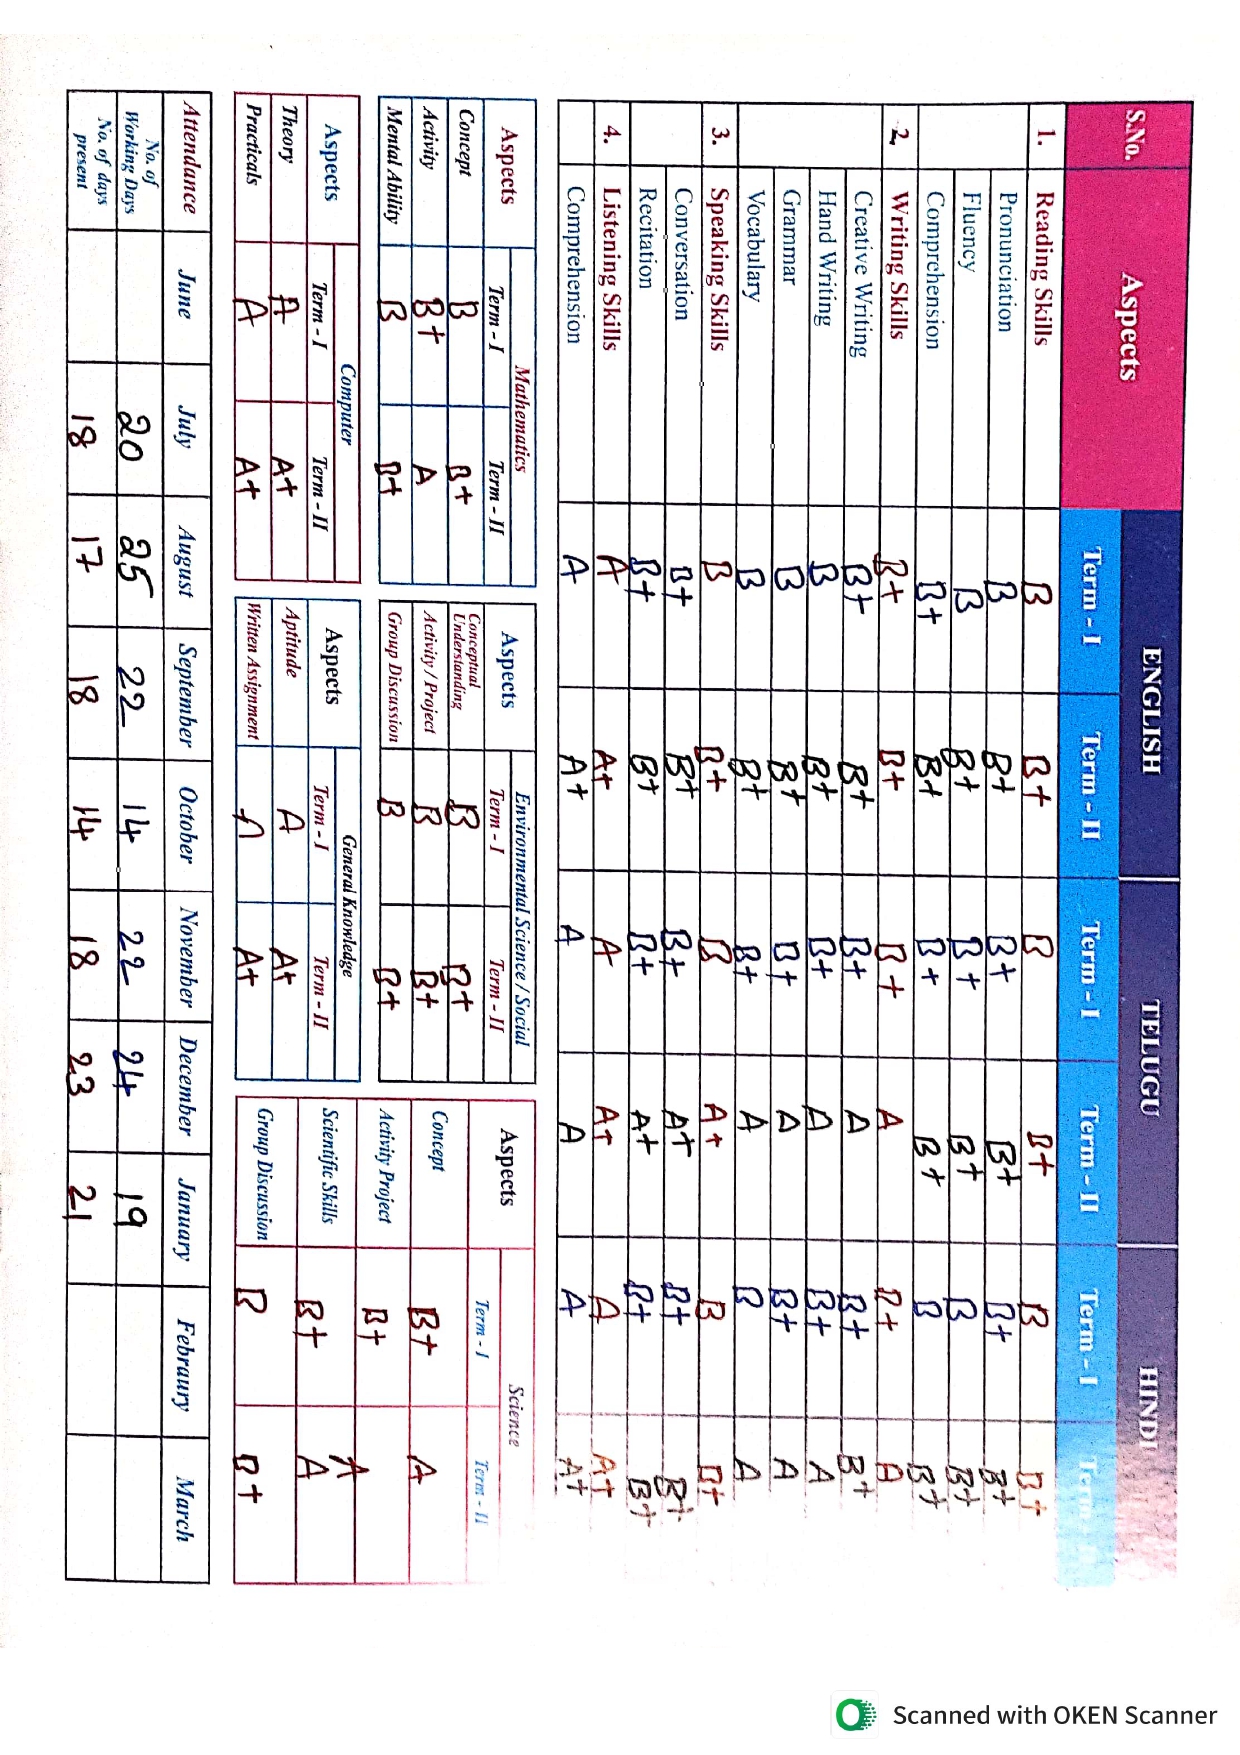 S.No. Aspects ENGLISH TELUGU HINDI
Term - I Term - II Term - I Term - II Term - I Term
1. Reading Skills B B+ B B+ B B+
Pronunciation B B+ B+ B+ B+ B+
Fluency B B+ B+ B+ B B+
Comprehension B+ B+ B+ B+ B B+
2. Writing Skills B+ B+ B+ A B+ A
Creative Writing B+ B+ B+ A B+ B+
Hand Writing B B+ B+ A B+ A
Grammar B B+ B+ A B+ A
Vocabulary B B+ B+ A B A
3. Speaking Skills B B+ B A+ B B+
Conversation B+ B+ B+ A+ B+ B+
Recitation B+ B+ B+ A+ B+ B+
4. Listening Skills A A+ A A+ A A+
Comprehension A A+ A A A A+
Aspects Mathematics
Term - I Term - II
Concept B B+
Activity B+ A
Mental Ability B B+
Aspects Environmental Science / Social
Term - I Term - II
Conceptual
Understanding B B+
Activity / Project B B+
Group Discussion B B+
Aspects Science
Term - I Term - II
Concept B+ A
Activity Project B+ A
Scientific Skills B+ A
Group Discussion B B+
Aspects Computer
Term - I Term - II
Theory A A+
Practicals A A+
Aspects General Knowledge
Term - I Term - II
Aptitude A A+
Written Assignment A A+
Attendance June July August September October November December January Febraury March
No. of
Working Days 20 25 22 14 22 24 19
No. of days
present 18 17 18 14 18 23 21
Scanned with OKEN Scanner